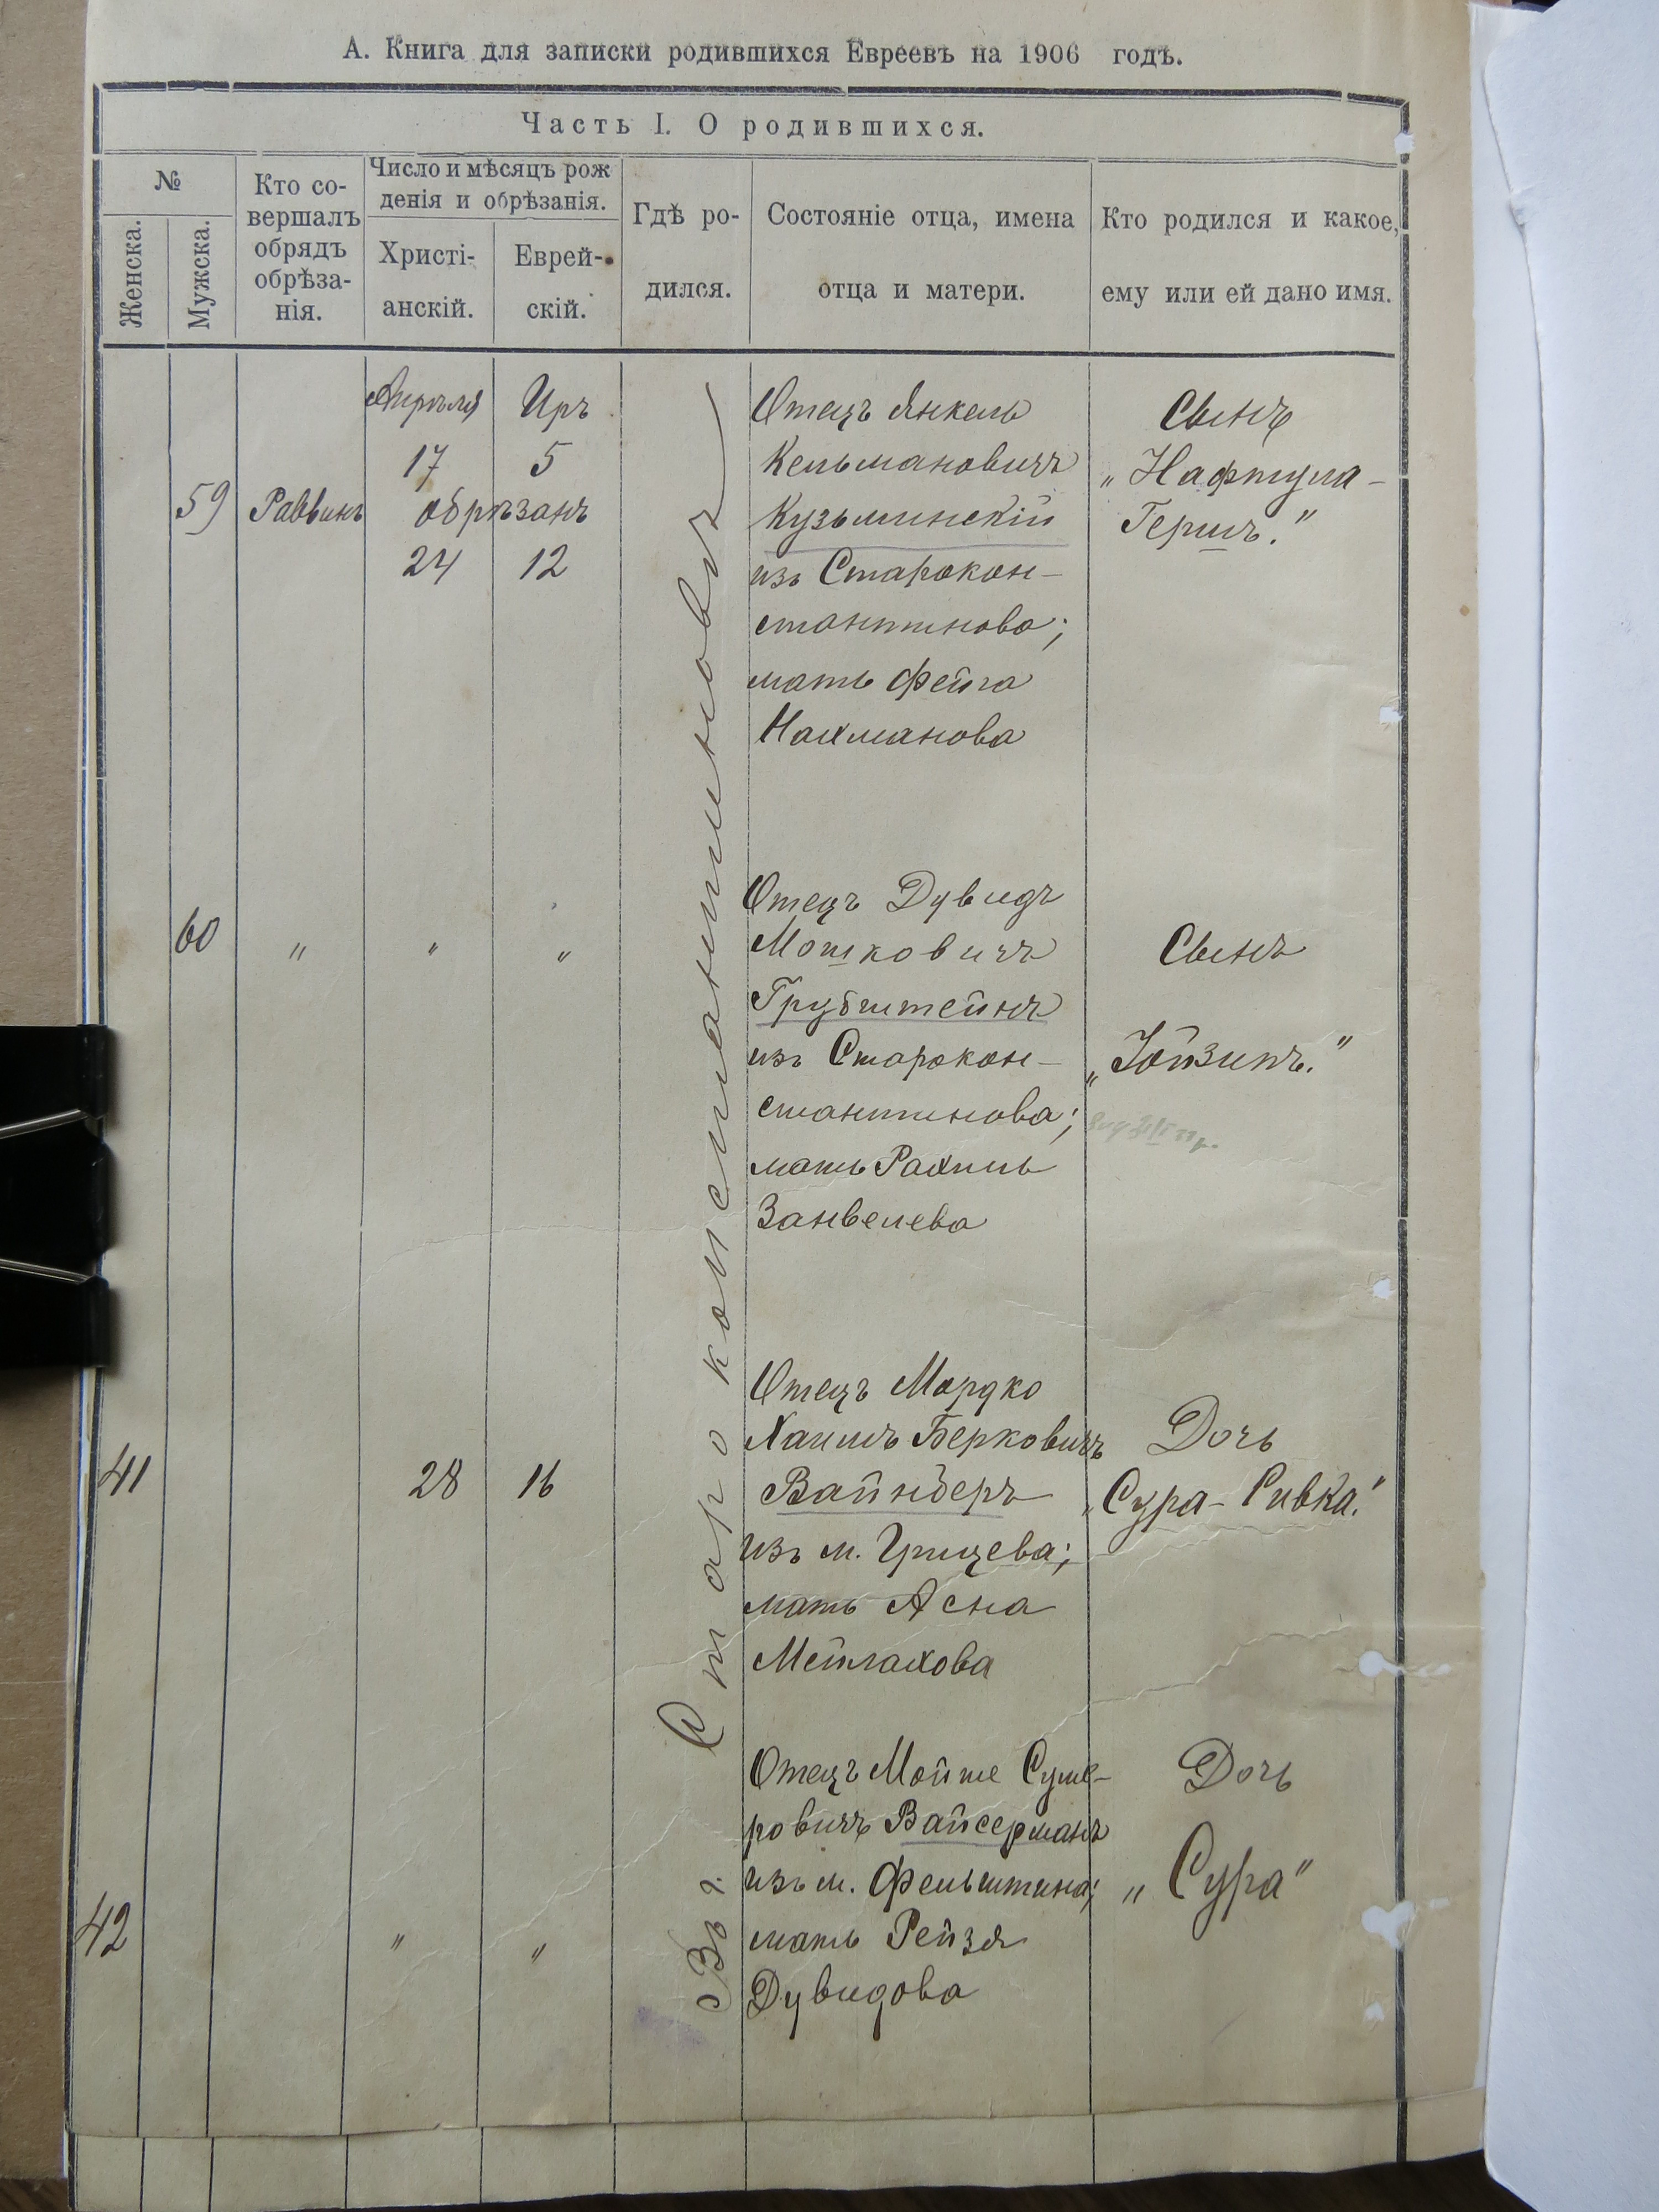 А. Книга для записки родившихся Евреевъ на 1906 годъ.
Часть I. О родившихся.
№
Женска.
Мужска.
Кто со-
вершалъ
обрядъ
обрѣза-
нія.
Число и мѣсяцъ рож
денія и обрѣзанія.
Христі-
анскій.
Еврей-
скій.
Гдѣ ро-
дился.
Состояніе отца, имена
отца и матери.
Кто родился и какое,
ему или ей дано имя.
Въ г. Староконстантиновѣ
59
Раввинъ
Апрѣля Иръ
17 5
обрѣзанъ
24 12
Отецъ Янкель
Кельмановичъ
Кузьминскій
изъ Старокон-
стантинова;
мать Фейга
Нахманова
Сынъ
„Нафтула-
Гершъ."
60
" " "
Отецъ Дувидъ
Мошковичъ
Грубштейнъ
изъ Старокон-
стантинова;
мать Рахиль
Занвелева
Сынъ
„Іойзипъ."
41
28 16
Отецъ Мордко
Хаимъ Берковичъ
Вайнберъ
изъ м. Грицева;
мать Асна
Мейлахова
Дочь
„Сура-Ривка."
42
" "
Отецъ Мойше Суме-
ровичъ Вайсерманъ
изъ м. Фельштина;
мать Рейзя
Дувидова
Дочь
„Сура"